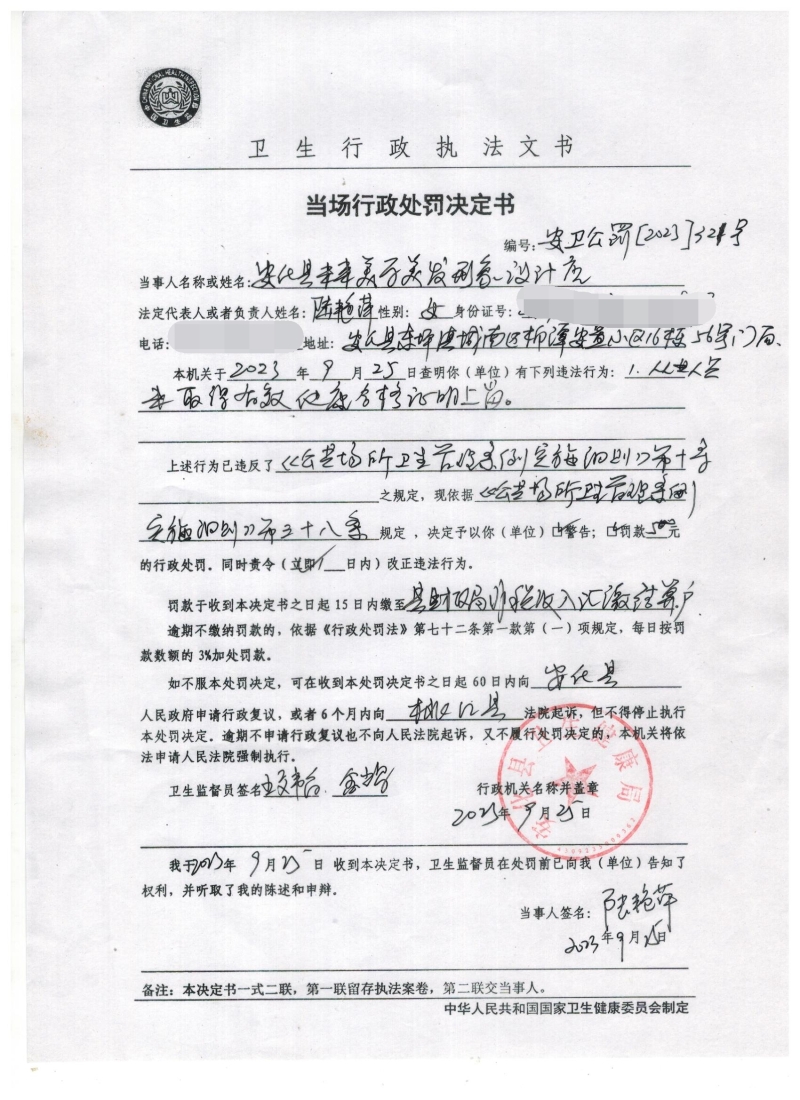 卫生行政执法文书
当场行政处罚决定书
编号：安卫公罚[2023]321号
当事人名称或姓名：安化县 美发形象设计店
法定代表人或者负责人姓名：陆艳萍 性别：女 身份证号：
电话： 地址：安化县东坪镇城南区柳潭安置小区16栋56号门面、
本机关于2023年9月25日查明你（单位）有下列违法行为：1.从业人员
未取得有效健康合格证明上岗。
上述行为已违反了《公共场所卫生管理条例实施细则》第十条
之规定，现依据《公共场所卫生管理条例
实施细则》第三十八条 规定，决定予以你（单位）☑警告；☑罚款500元
的行政处罚。同时责令（立即/ 日内）改正违法行为。
罚款于收到本决定书之日起15日内缴至县财政局非税收入汇缴结算户
逾期不缴纳罚款的，依据《行政处罚法》第七十二条第一款第（一）项规定，每日按罚
款数额的3%加处罚款。
如不服本处罚决定，可在收到本处罚决定书之日起60日内向 安化县
人民政府申请行政复议，或者6个月内向 桃江县 法院起诉，但不得停止执行
本处罚决定。逾期不申请行政复议也不向人民法院起诉，又不履行处罚决定的，本机关将依
法申请人民法院强制执行。
卫生监督员签名
行政机关名称并盖章
安化县卫生健康局
2023年9月25日
我于2023年9月25日收到本决定书，卫生监督员在处罚前已向我（单位）告知了
权利，并听取了我的陈述和申辩。
当事人签名：陆艳萍
2023年9月25日
备注：本决定书一式二联，第一联留存执法案卷，第二联交当事人。
中华人民共和国国家卫生健康委员会制定